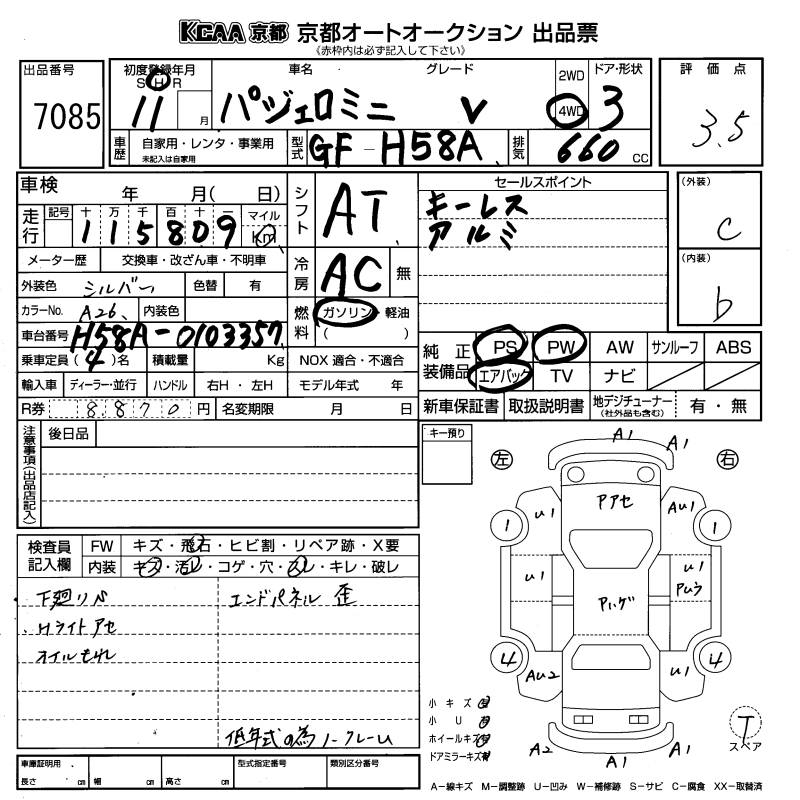 KCAA 京都 京都オートオークション 出品票
《赤枠内は必ず記入して下さい》
出品番号
7085
初度登録年月
S H R
11 月
車名
パジェロミニ
グレード
V
2WD
4WD
ドア・形状
3
評価点
3.5
車歴
自家用・レンタ・事業用
未記入は自家用
型式
GF-H58A
排気
660 CC
車検 年 月( 日)
走行
記号 十 万 千 百 十 一
115809
マイル
Km
シフト
AT
セールスポイント
キーレス
アルミ
(外装)
C
(内装)
b
メーター歴 交換車・改ざん車・不明車
外装色 シルバー 色替 有
冷房
AC 無
カラーNo. A26 内装色
燃料
ガソリン・軽油
( )
車台番号 H58A-0103357
乗車定員 (4)名 積載量 Kg NOX 適合・不適合
輸入車 ディーラー・並行 ハンドル 右H・左H モデル年式 年
R券 8,870 円 名変期限 月 日
純正装備品
PS PW AW サンルーフ ABS
エアバッグ TV ナビ
新車保証書 取扱説明書 地デジチューナー(社外品も含む) 有・無
注意事項(出品店記入)
後日品
キー預り
検査員記入欄
FW キズ・飛石・ヒビ割・リペア跡・X要
内装 キズ・汚レ・コゲ・穴・スレ・キレ・破レ
下廻りサビ
Hライトアセ
オイルもれ
エンドパネル 歪
低年式の為ノークレーム
左
右
A1
A1
U1
Pアセ
AU1
1
1
U1
U1
Pハゲ
4
4
AU2
U1
A2
A1
A1
小キズ
小U
ホイールキズ
ドアミラーキズ
T
スペア
車庫証明用
長さ cm 幅 cm 高さ cm
型式指定番号
類別区分番号
A-線キズ M-調整跡 U-凹み W-補修跡 S-サビ C-腐食 XX-取替済